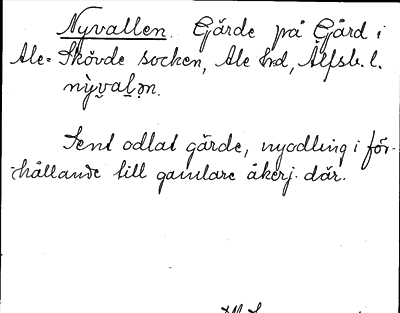 Nyvallen. Gärde på Gård i
Ale-Skövde socken, Ale hd, Älfsb. l.
nỳvaḷən.
Sent odlat gärde, nyodling i för-
hållande till gamlare åkerj. där.